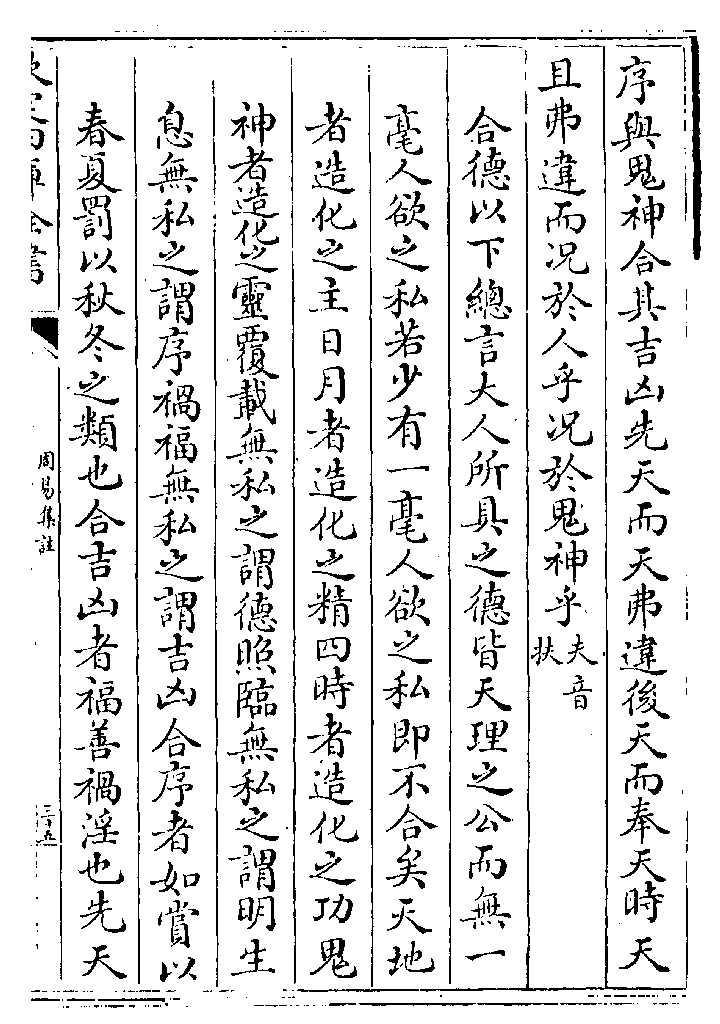 序與鬼神合其吉凶先天而天弗違後天而奉天時天
且弗違而况於人乎况於鬼神乎夫音扶
合德以下總言大人所具之德皆天理之公而無一
毫人欲之私若少有一毫人欲之私即不合矣天地
者造化之主日月者造化之精四時者造化之功鬼
神者造化之靈覆載無私之謂德照臨無私之謂明生
息無私之謂序禍福無私之謂吉凶合序者如賞以
春夏罰以秋冬之類也合吉凶者福善禍淫也先天
欽定四庫全書
周易集註
三十五